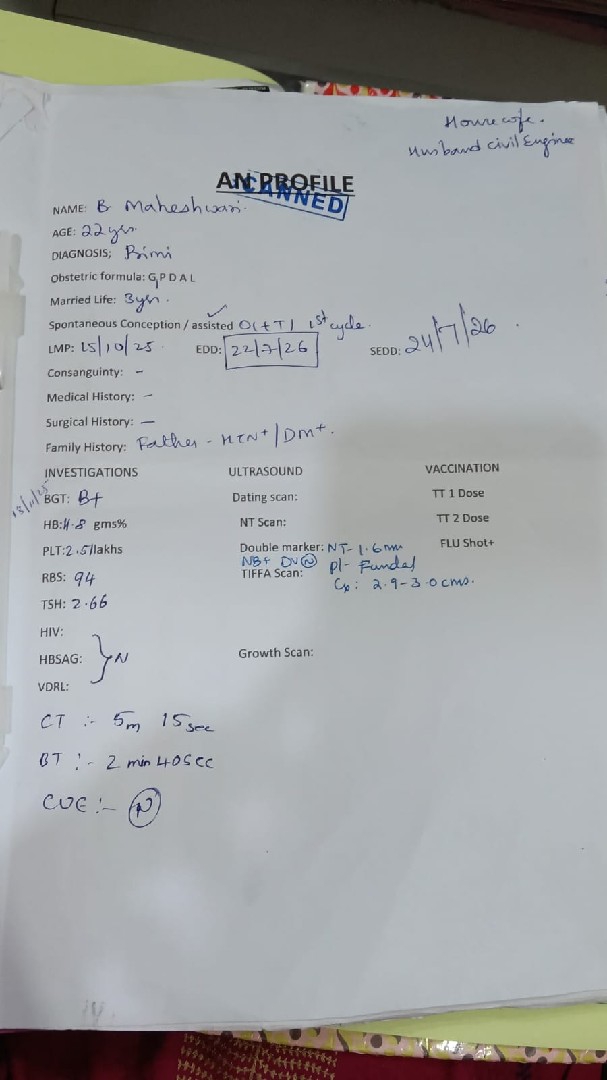 Housewife.
Husband civil Enginee
AN PROFILE
SCANNED
NAME: B Maheshwari.
AGE: 22 yrs
DIAGNOSIS; Primi
Obstetric formula: G, P D A L
Married Life: 3yrs.
Spontaneous Conception / assisted OI + TI 1st cycle.
LMP: 15/10/25 EDD: 22/7/26 SEDD: 24/7/26.
Consanguinty: -
Medical History: -
Surgical History: -
Family History: Father - HTN+ / DM+.
INVESTIGATIONS ULTRASOUND VACCINATION
BGT: B+ Dating scan: TT 1 Dose
HB: 11.8 gms% NT Scan: TT 2 Dose
PLT: 2.51lakhs Double marker: NT- 1.6mm FLU Shot+
NB+ DV(N) pl- Fundal
RBS: 94 TIFFA Scan: Cx: 2.9-3.0 cms.
TSH: 2.66
HIV:
HBSAG: } N Growth Scan:
VDRL:
CT :- 5m 15sec
BT :- 2 min 40sec
CUE :- (N)